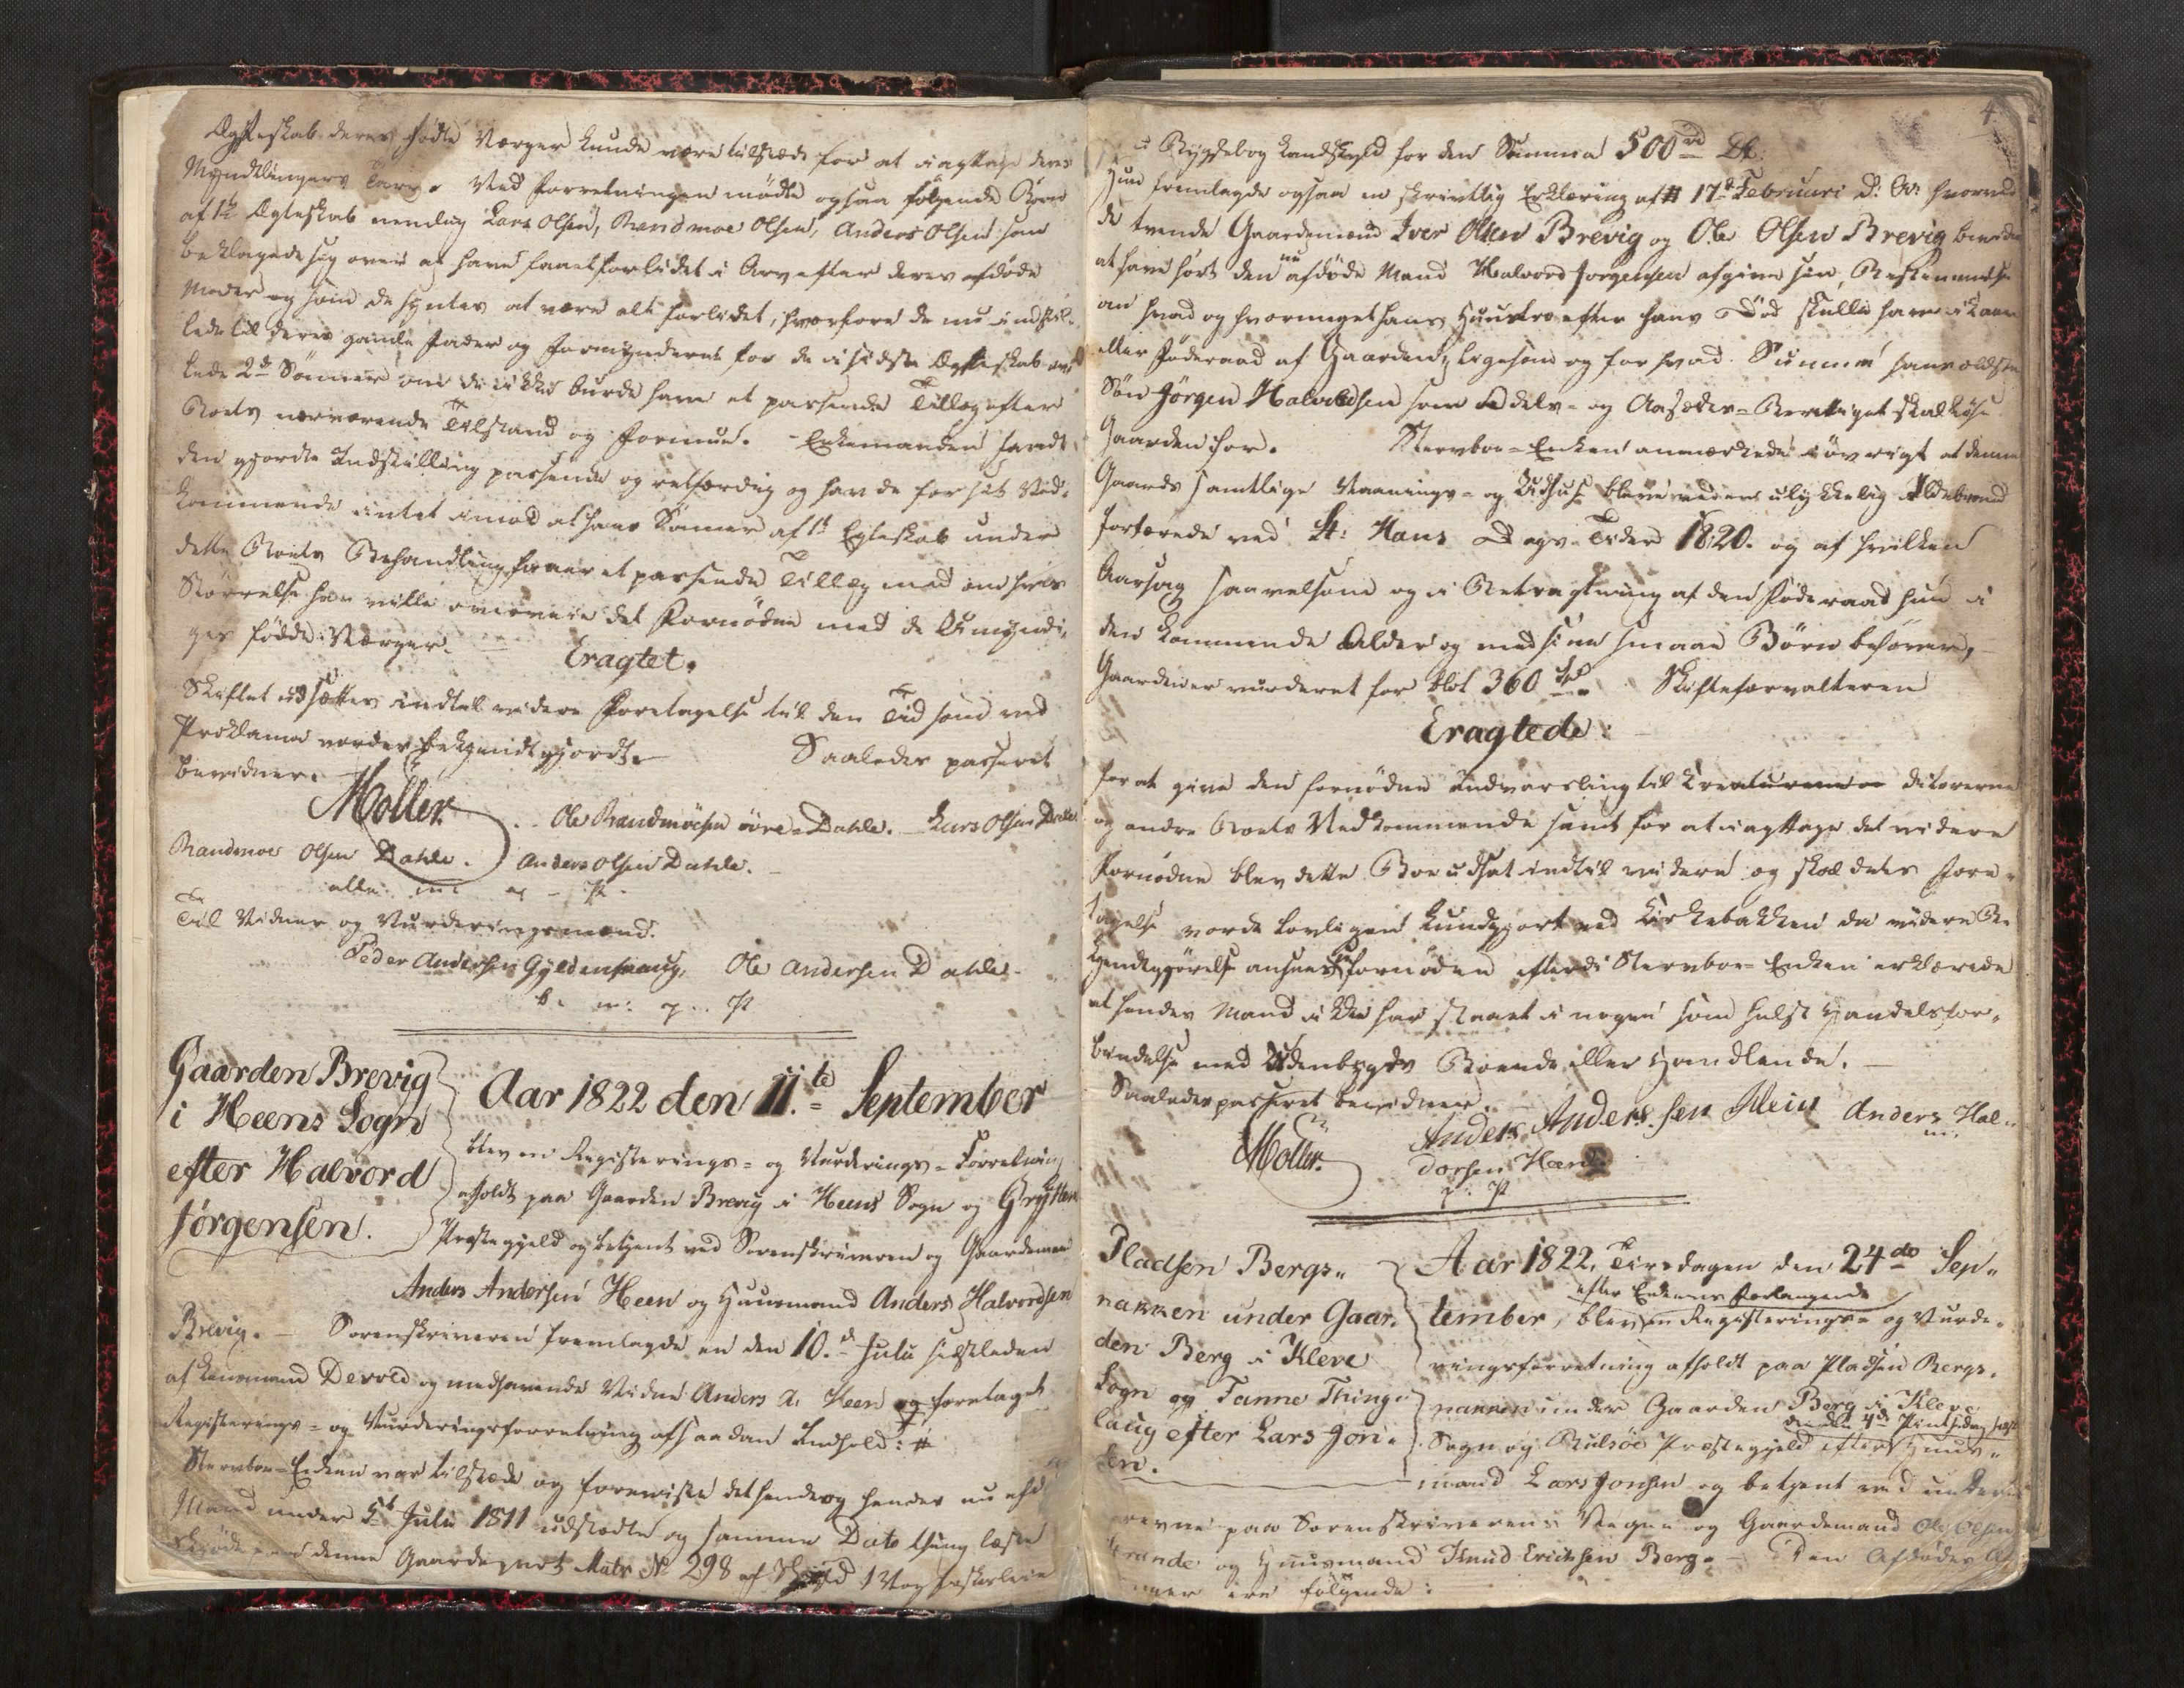 Ægteskab deres fødte Værger kunde være tilstæde for at iagttage deres
Myndtlingers Tarv. Ved Forretningen mødte ogsaa følgende Børn
af 1te Ægteskab nemlig Lars Olsen, Randmoe Olsen, Anders Olsen som
beklagede sig over at have faaet forlidet i Arv efter deres afdøde
Moder og som de syntes at være alt forlidet, hvorfore de nu indstil-
lede til deres gamle Fader og Formynderne for de i sidste Ægteskab av-
lede 2de Sønner om de ikke burde have et passende Tillæg efter
Boets nærværende Tilstand og Formue. Enkemanden fandt
den gjordte Indstilling passende og retfærdig og hav de for sit Ved-
kommende intet imod at hans Sønner af 1te Egteskab under
dette Boets Behandling faaer et passende Tillæg med om hvis
Størrelse han ville overveie det Fornødne med de Umyndi-
ges fødde Værger.
Eragtet.
Skiftet udsættes indtil videre Foretagelse til den Tid som ved
Proklama vorder bekjendtgjordt. Saaledes passeret
bevidner.
Møller. Ole Randmöesen övre Dahle. Lars Olsen Dahle
Randmoe Olsen Dahle. Anders Olsen Dahle.
alle m: og P.
Til Vidner og Vurderingsmænd.
Peder Andersen Gyldenhaug, Ole Andersen Dahle
b. m: p. P
Gaarden Brevig
i Heens Sogn
efter Halvord
Jørgensen.
Aar 1822 den 11.te September
blev en Registerings- og Vurderings-Forretning
afholdt paa Gaarden Brevig i Heens Sogn og Grytten
Præstegjeld og betjent ved Sorenskriveren og Gaardmand
Anders Andersen Heen og Huusmand Anders Halvordsen
Brevig. Sorenskriveren fremlagde en den 10.d Julii sidstleden
af Lensmand Devold og medhavende Vidne Anders A. Heen og foretaget
Registerings- og Vurderingsforretning af saadan Indhold: #
Stervboe-Enken var tilstæde og foreviiste det hende og hendes nu afdøde
Mand under 5te Julii 1811 udstædte og samme Dato thinglæste
Skjøde paa denne Gaardepart Matr No 298 af Skyld 1 Vog fiskesleie
4
u Bygdebog Landskyld for den Summa 500 rd Dk:
Hun fremlagde ogsaa en skrivtlig Erklæring af # 17de Februari d: A: hvorved
de tvende Gaardmænd Iver Olsen Brevig og Ole Olsen Brevig bevidne
at have hørt den nu afdøde Mand Halvord Jorgensen afgive sin Bestemmelse
om hvad og hvormeget hans Huustroe efter hans Død skulle have i Kaar
eller Føderaad af Gaarden, ligesom og for hvad Summa hans ældste
Søn Jørgen Halvordsen som Odels- og Aasædes-Berettiget skal løse
Gaarden for. Stervboe-Enken anmærkede iøvrigt at denne
Gaards samtlige Vaanings- og Udhuse bleve ved en ulykkelig Ildebrand
fortærede ved St: Hans Dags-Tider 1820. og af hvilken
Aarsag saavelsom og i Betragtning af den Føderaad hun i
den kommende Alder og med sine smaae Børn behøver,
Gaarden er vurderet for blot 360 Spd. Skifteforvalteren
Eragtede:
for at give den fornødne Indvarsling til Kreaturene ditorerne
og andre Boets Vedkommende samt for at iagttage det videre
Fornødne blev dette Boe udsat indtil videre og skal dets Fore-
tagelse vorde lovligen kundgjort ved Kirkebakken da videre Be-
kjendtgjørelse ansees ufornøden efterdi Stervboe-Enken erklærede
at hendes Mand ikke har staaet i nogen som helst Handelsfor-
bindelse med Udenbygds Boende eller Handlende.
Saaledes passeret bevidner.
Møller. Anders Anders.sen Hein Anders Hal-
vorsen Heen m.
p: P
Pladsen Bergs-
nakken under Gaar-
den Berg i Kleve
Sogn og Tanne Thing-
laug efter Lars Jon-
sen.
Aar 1822, Tirsdagen den 24de Sep-
efter Enkens Forlangende
tember, blev en Registerings- og Vurde-
ringsforretning afholdt paa Pladsen Bergs-
nakken under Gaarden Berg i Kleve
den 4de Pintsedag sidst
Sogn og Bulsöe Præstegjeld efter Huus-
mand Lars Jonsen og betjent ved under
revne paa Sorenskriverens Vegne og Gaardemand Ole Olsen
trande og Huusmand Knud Erichsen Berg. Den Afdødes Ar-
inger ere følgende: